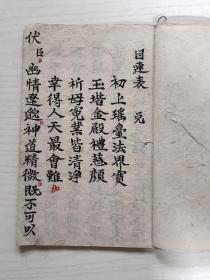 目連表 兌
初上瑤臺法界寬
玉堦金殿禮慈顏
祈母寃業皆清淨
幸得人天最會難
伏臣
幽情遼邈神道精微既不可以